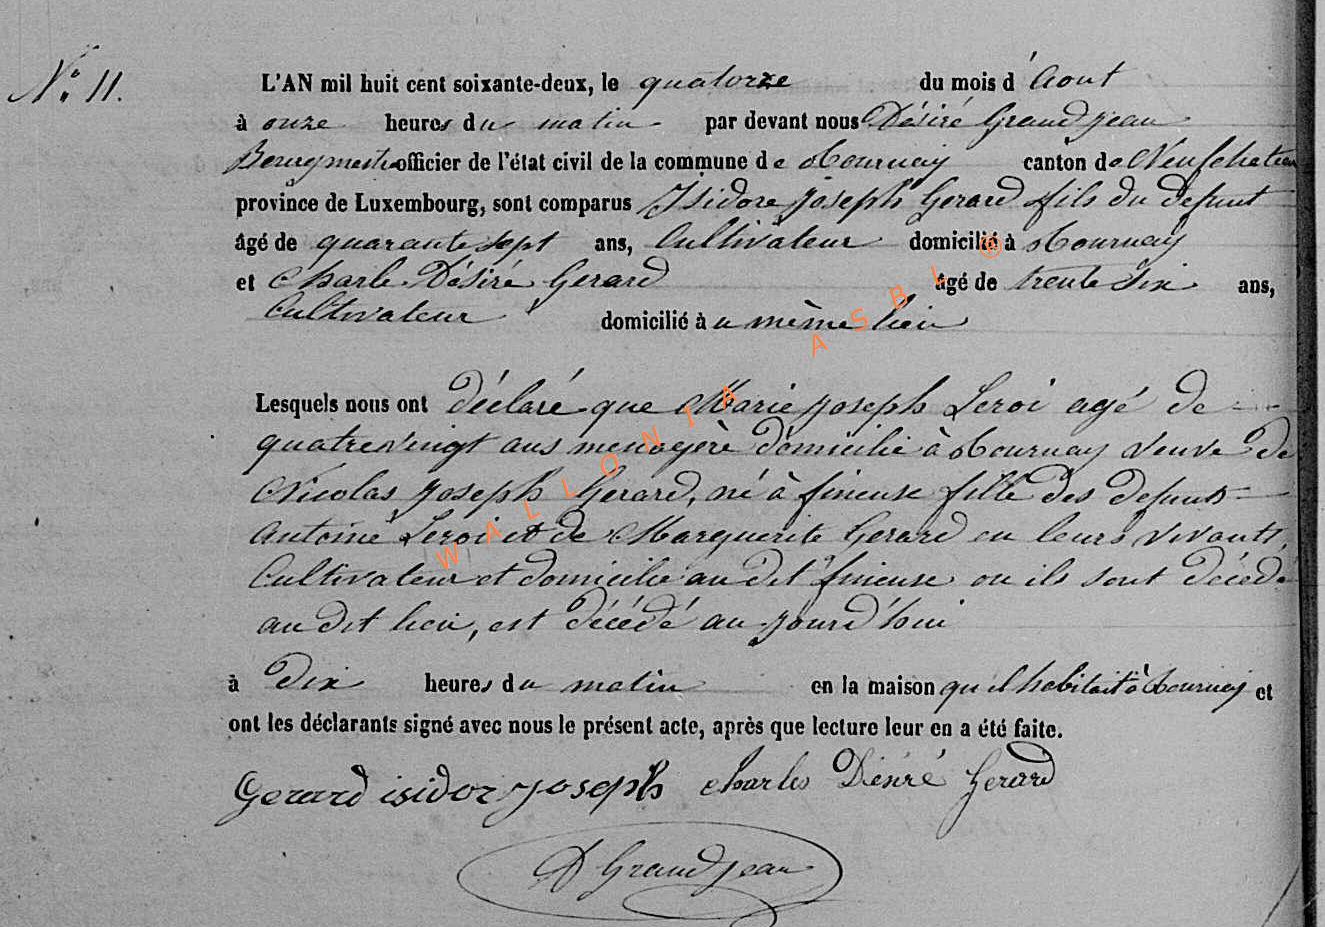 N° 11.
L'AN mil huit cent soixante-deux, le quatorze du mois d'Aout
à onze heures du matin par devant nous Désiré Grandjean
Bourgmestre officier de l'état civil de la commune de Tournay canton de Neufchateau
province de Luxembourg, sont comparus Isidore Joseph Gerard fils du defunt
âgé de quarante sept ans, Cultivateur domicilié à Tournay
et Charle Désiré Gerard âgé de trente six ans,
Cultivateur domicilié à u même lieu
Lesquels nous ont déclaré que Marie Joseph Leroi agé de
quatrevingt ans menagère domicilié à Tournay veuve de
Nicolas Joseph Gerard, né à fineuse fille des defunts
Antoine Leroi et de Marguerite Gerard en leurs vivants
Cultivateur et domicilié au dit fineuse ou ils sont décédé
au dit lieu, est décédé au jourd'hui
à dix heures du matin en la maison qu'il habitait à Tournay et
ont les déclarants signé avec nous le présent acte, après que lecture leur en a été faite.
Gerard isidor joseph Charles Désiré Gerard
D Grandjean
WALLONIA ASBL ®